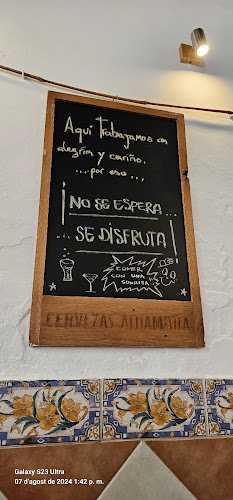 Aquí Trabajamos con
alegría y cariño,
...por eso...,
¡NO SE ESPERA...
... SE DISFRUTA!
COMER
CON UNA
SONRISA
CERVEZAS ALHAMBRA
Galaxy S23 Ultra
07 d'agost de 2024 1:42 p. m.